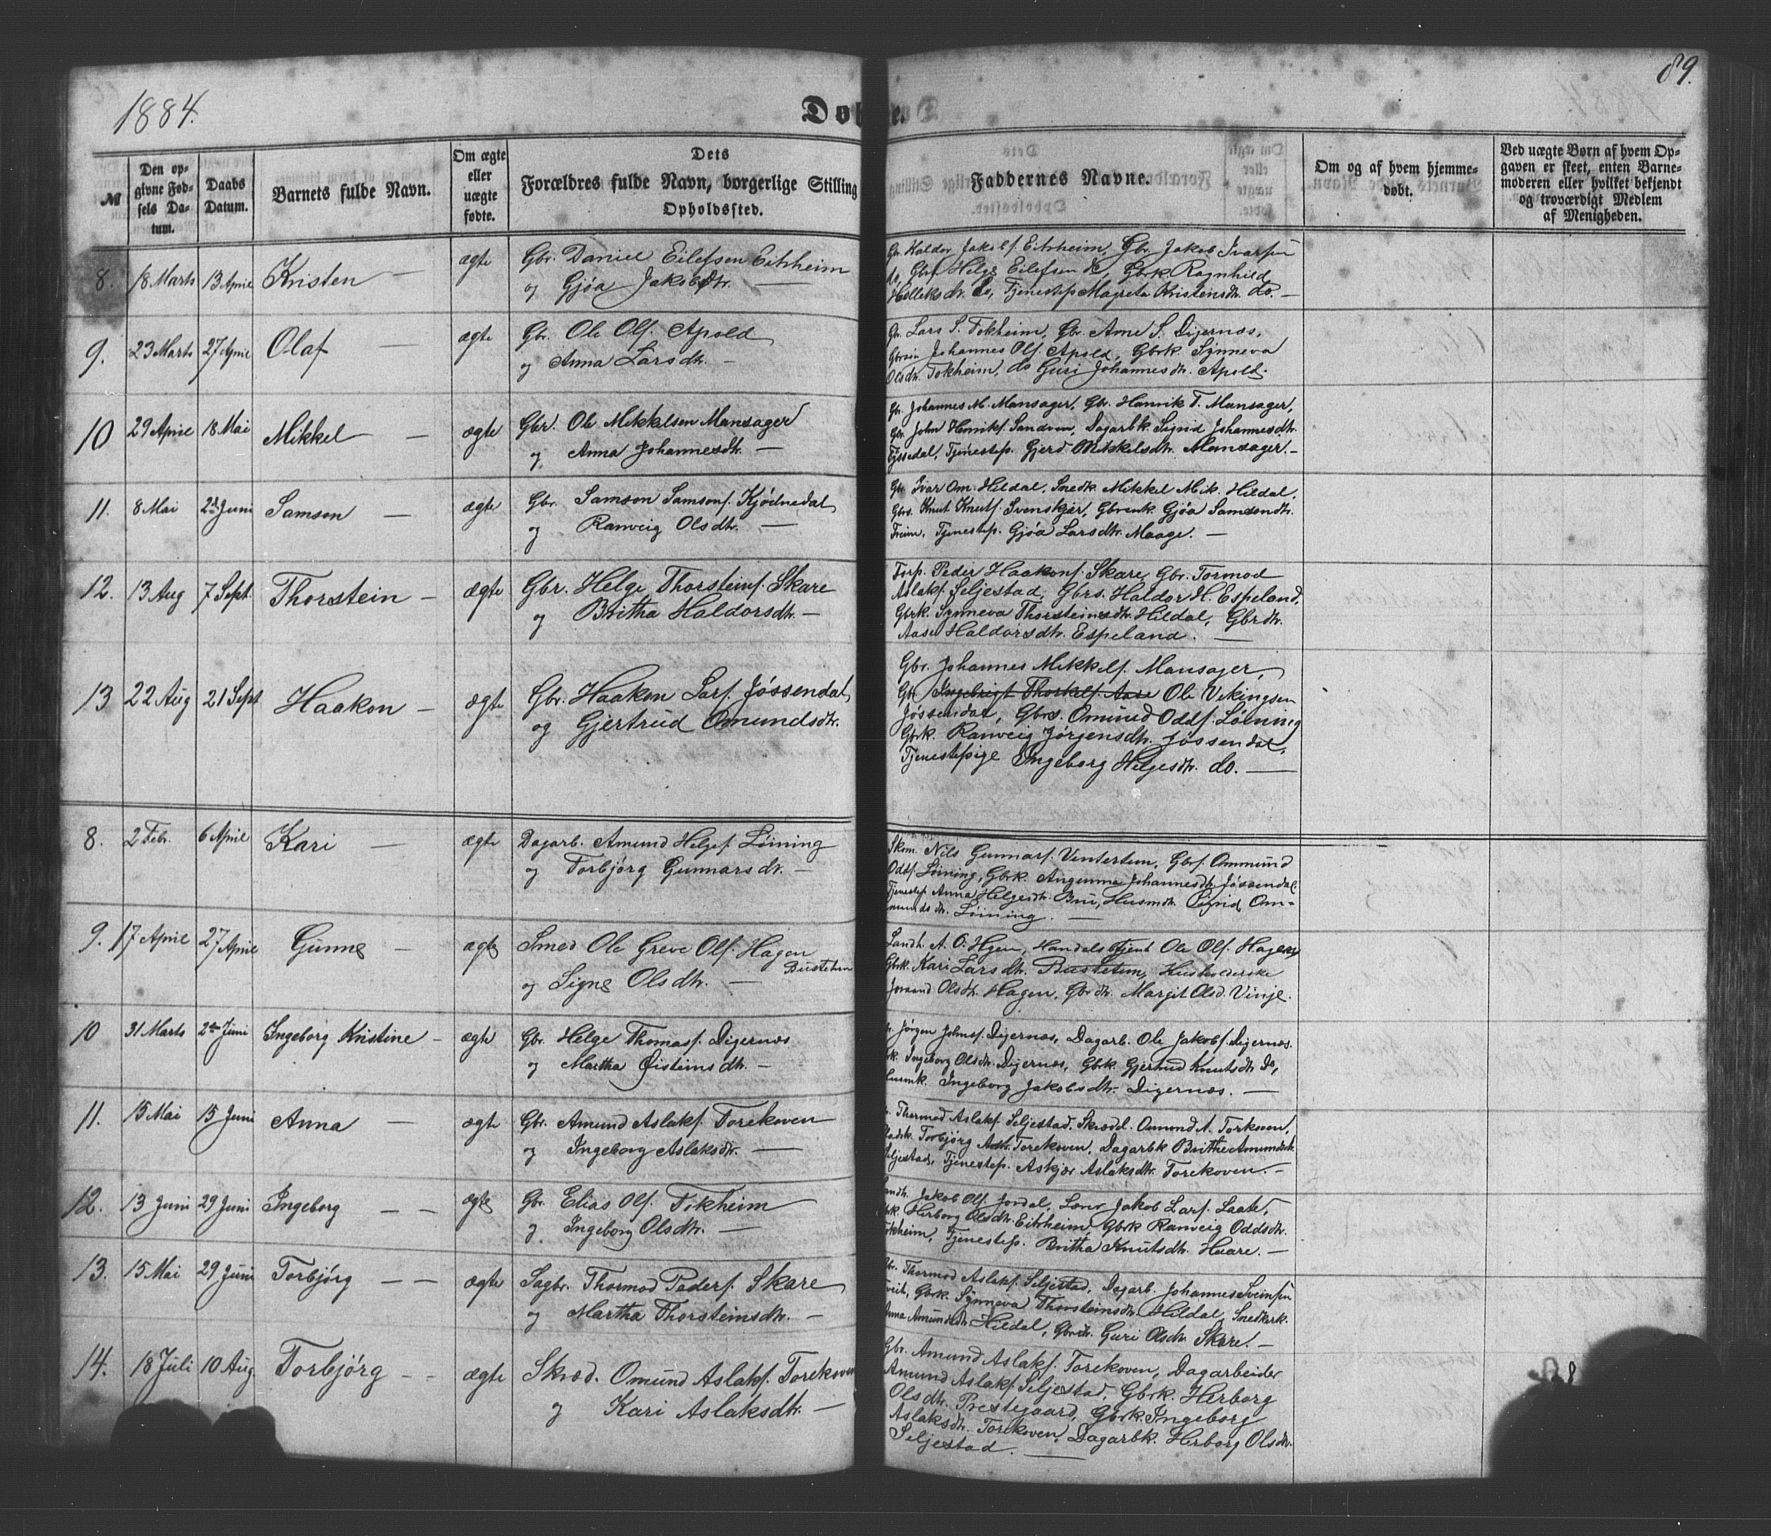 1884.
Døbte.
89.
№
Den opgivne Fødsels Datum.
Daabs Datum.
Barnets fulde Navn.
Om ægte eller uægte fødte.
Dets
Forældres fulde Navn, borgerlige Stilling
Opholdssted.
Faddernes Navne.
Om og af hvem hjemmedøbt.
Ved uægte Børn af hvem Opgaven er skeet, enten Barnemoderen eller hvilket bekjendt og troværdigt Medlem af Menigheden.
8. 18 Marts 13 April Kristen — ægte Gbr. Daniel Eilefsen Eitrheim
og Gjøa Jakobsdtr. —
Gr. Haldor Jakobs. Eitrheim, Gbr. Jakob Ivarsen
do, Gbrs. Helge Eilefsen do, Gbrk. Ragnhild
Helleksdtr. do, Tjenestep. Magreta Kristensdtr. do. —
9. 23 Marts 27 April Olaf — ægte Gbr. Ole Ols. Apold
og Anna Larsdtr. —
Gr. Lars S. Tokheim, Gbr. Arne S. Digernæs,
Johannes Ols. Apold, Gbrk. Synneva
Olsdtr. Tokheim, do Guri Johannesdtr. Apold.
10 29 April 18 Mai Mikkel — ægte Gbr. Ole Mikkelsen Mansager
og Anna Johannesdtr. —
Gr. Johannes M. Mansager, Gbr. Henrik T. Mansager,
Gbr. John Henriks. Sandven, Dagarbk. Sigrid Johannesdtr.
Tyssedal, Tjenestep. Gjerd Mikkelsdtr. Mansager. —
11. 8 Mai 2d Juni Samson — ægte Gbr. Samson Samsons. Kjødnedal
og Ranveig Olsdtr. —
Gbr. Ivar Om. Hildal, Snedk. Mikkel Mik. Hildal,
Gbrs. Knut Knuts. Svenskjær, Gbrenk. Gjøa Samsondtr.
Freim, Tjenestep. Gjøa Larsdtr. Maage. —
12. 13 Aug 7 Sept. Thorstein — ægte Gbr. Helge Thorsteins. Skare
og Britha Haldorsdtr. —
Forp. Peder Haakons. Skare, Gbr. Tormod
Aslaks. Seljestad, Gbrs. Haldor H. Espeland,
Gbrk. Synneva Thorsteinsdtr. Hildal, Gbrdtr.
Aase Haldorsdtr. Espeland. —
13 22 Aug 21 Sept Haakon — ægte Gbr. Haakon Lars. Jøssendal,
og Gjertrud Omundsdtr.
Gbr. Johannes Mikkels. Mansager,
Gbr. Ingebrigt Thorkels. Aase Ole Vikingsen
Jøssendal, Gbrs. Omund Odds. Løining
Gbrk. Ranveig Jørgensdtr. Jøssendal,
Tjenestepige Ingeborg Helgesdtr. do. —
8. 2 Febr. 6 April Kari — ægte Dagarb. Amund Helges. Løining
og Torbjørg Gunnarsdtr. —
Skom. Nils Gunnars. Ventertun, Gbrs. Ommund
Odds. Løining, Gbrk. Angunna Johannesdtr. Jøssendal
Tjenestep. Anna Helgesdtr. Bru, Husmdtr. Sigrid Om-
mundsdtr. Løining. —
9. 17 April 27 April Gunne — ægte Smed Ole Greve Ols. Hagen
Bustetun
og Signe Olsdtr. —
Landh. A. O. Hgen, Handelsbetjent Ole Ols. Hagen,
Gbrk. Kari Larsdtr. Bustetun, Husholderske
Jorand Olsdtr. Hagen, Gbrdtr. Margit Olsd. Vinje.
10 31 Marts 2den Juni Ingeborg Kristine — ægte Gbr. Helge Thomas. Digernæs
og Martha Øisteinsdtr. —
Jørgen Johns. Digernæs, Dagarb. Ole Jakobs. Digernæs.
Ingeborg Olsdtr. Digernæs, Gbrk. Gjertrud Knutsdtr. Do,
Husmk. Ingeborg Jakobsdtr. Digernæs. —
11. 15 Mai 15 Juni Anna — ægte Gbr. Amund Aslaks. Torekoven
og Ingeborg Aslaksdtr. —
Thormod Aslaks. Seljestad, Skrædd. Omund A. Torkoven,
Torbjørg Asdtr. Torekoven, Dagarbk Brithe Amundsdtr.
Seljestad, Tjenestep. Askjær Aslaksdtr. Torekoven. —
12. 13 Juni 29 Juni Ingeborg — — ægte Gbr. Elias Ols. Tokheim
og Ingeborg Olsdtr. —
Landh. Jakob Ols. Jordal, Lærer Jakob Lars. Laate,
Herborg Olsdtr. Eitrheim, Gbrk Ranveig Oddsdtr.
Tokheim, Tjenestep. Britha Knutsdtr. Huare. —
13. 15 Mai 29 Juni Torbjørg — — ægte Sagbr. Thormod Peders. Skare
og Martha Thorsteinsdtr. —
Gbr. Thormod Aslaks. Seljestad, Dagarb. Johannes Sveinsen
Gbrk. Synneva Thorsteinsdtr. Hildal, Snedkerk.
Anna Amundsdtr. Hildal, Gbrdtr. Guri Olsdtr. Skare. —
14. 18 Juli 10 Aug. Torbjørg — — ægte Skræd. Omund Aslaks. Torekoven
og Kari Aslaksdtr. —
Gbr. Amund Aslaks. Torekoven, Dagarbeider
Amund Aslaks. Seljestad, Gbrk. Herborg
Olsdtr. Prestegaard, Gbrk. Ingeborg
Aslaksdtr. Torekoven, Dagarbk. Herborg Olsdtr.
Seljestad. —